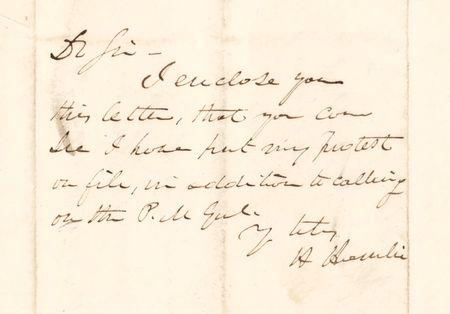 Dr Sir -
I enclose you
this letter, that you can
see I have put my protest
on file, in addition to calling
on the P. M Genl.
Y
H Hamlin